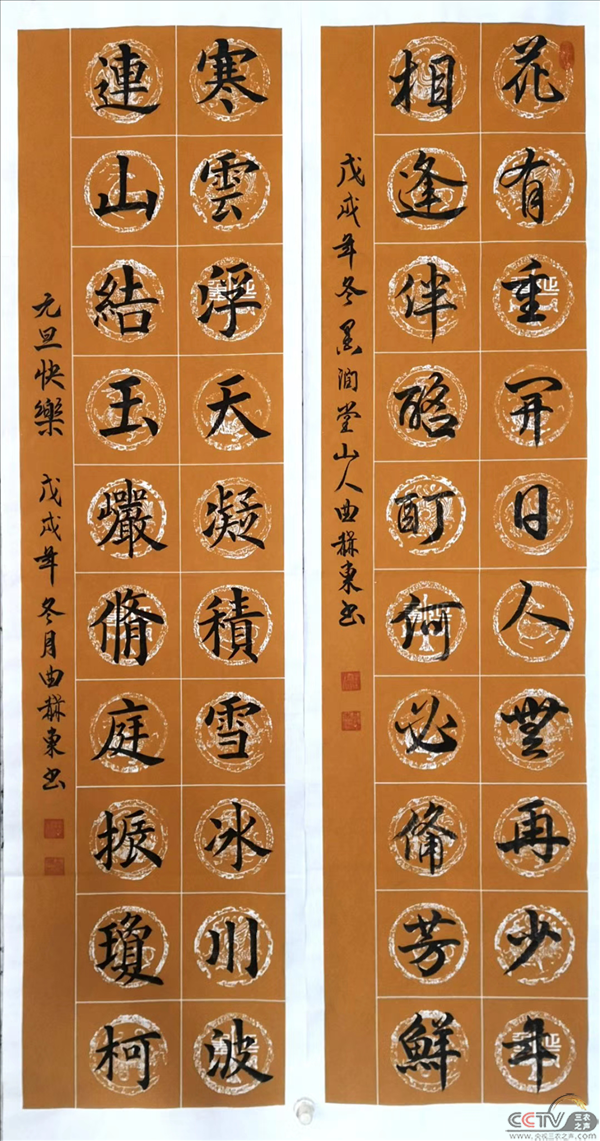 花有重開日人無再少年
相逢伴酩酊何必備芳鮮
戊戌年冬墨澗堂山人曲東书
寒雲浮天凝積雪冰川波
連山結玉巖脩庭振瓊柯
元旦快樂 戊戌年冬月曲東书
CCTV 三农之声
www.央视三农之声.com